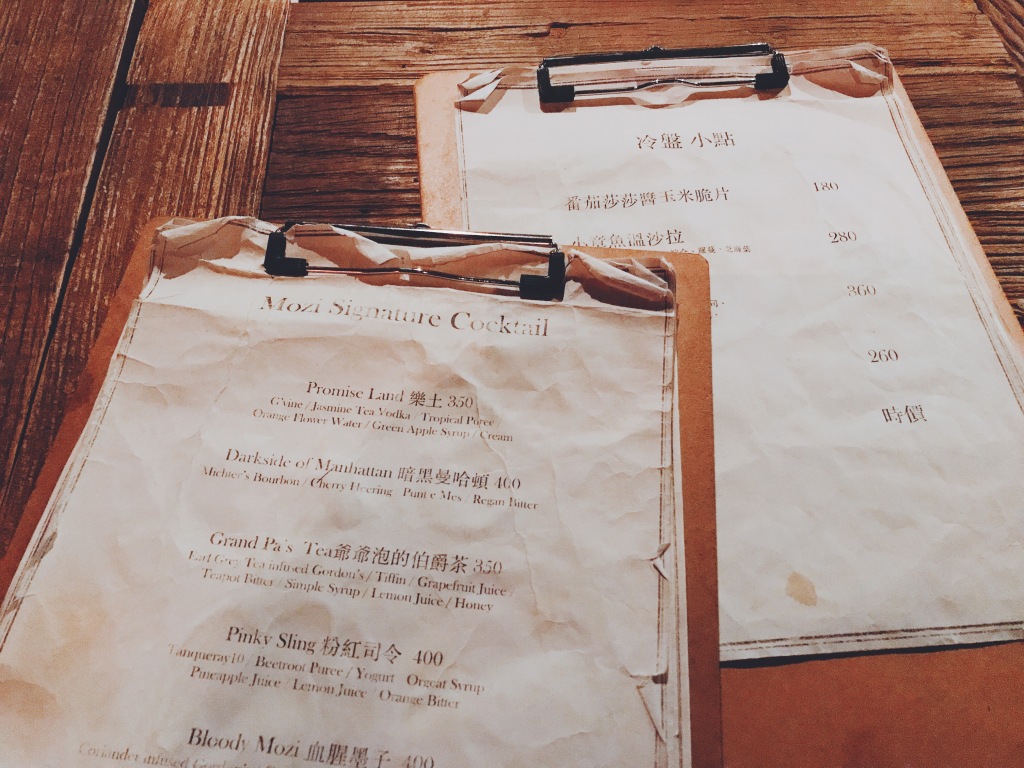 冷盤 小點
番茄莎莎醬玉米脆片 180
小章魚溫沙拉 280
360
260
時價
Mozi Signature Cocktail
Promise Land 樂土 350
G'Vine / Jasmine Tea Vodka / Tropical Puree
Orange Flower Water / Green Apple Syrup / Cream
Darkside of Manhattan 暗黑曼哈頓 400
Michter's Bourbon / Cherry Heering Punt e Mes / Regan Bitter
Grand Pa's Tea爺爺泡的伯爵茶 350
Earl Grey Tea infused Gordon's / Tiffin / Grapefruit Juice /
Teapot Bitter / Simple Syrup / Lemon Juice / Honey
Pinky Sling 粉紅司令 400
Tanqueray10 / Beetroot Puree / Yogurt Orgeat Syrup
Pineapple Juice / Lemon Juice / Orange Bitter
Bloody Mozi 血腥墨子 400
Coriander infused